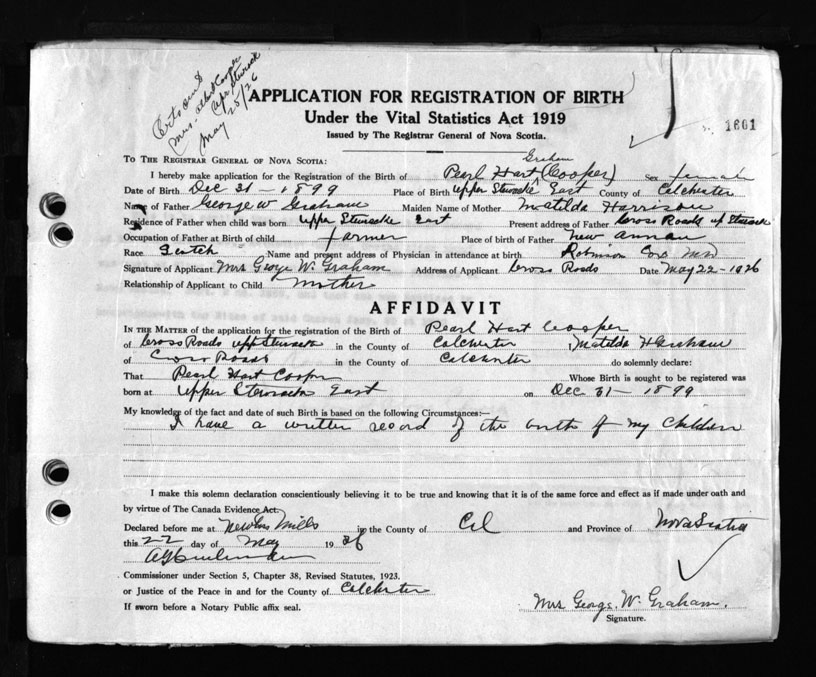 Mrs. Albert Cooper
Upr Stewiacke
May 25/26
APPLICATION FOR REGISTRATION OF BIRTH
Under the Vital Statistics Act 1919
Issued by The Registrar General of Nova Scotia.
1601
TO THE REGISTRAR GENERAL OF NOVA SCOTIA:
Graham
I hereby make application for the Registration of the Birth of Pearl Hart (Cooper) Sex female
Date of Birth Dec 31 - 1899 Place of Birth Upper Stewiacke East County of Colchester
Name of Father George W Graham Maiden Name of Mother Matilda Harrison
Residence of Father when child was born Upper Stewiacke East Present address of Father Cross Roads up Stewiacke
Occupation of Father at Birth of child farmer Place of birth of Father New Annan
Race Scotch Name and present address of Physician in attendance at birth Robinson
Signature of Applicant Mrs George W. Graham Address of Applicant Cross Roads Date May 22 - 1926
Relationship of Applicant to Child mother
AFFIDAVIT
IN THE MATTER of the application for the registration of the Birth of Pearl Hart Cooper
of Cross Roads upp Stewiacke in the County of Colchester I, Matilda H Graham
of Cross Roads in the County of Colchester do solemnly declare:
That Pearl Hart Cooper Whose Birth is sought to be registered was
born at Upper Stewiacke East on Dec 31 - 1899
My knowledge of the fact and date of such Birth is based on the following Circumstances:—
I have a written record of the birth of my children
I make this solemn declaration conscientiously believing it to be true and knowing that it is of the same force and effect as if made under oath and
by virtue of The Canada Evidence Act.
Declared before me at Newton Mills in the County of Col and Province of Nova Scotia
this 22 day of May 1926
Commissioner under Section 5, Chapter 38, Revised Statutes, 1923.
or Justice of the Peace in and for the County of Colchester
If sworn before a Notary Public affix seal.
Mrs George. W. Graham.
Signature.